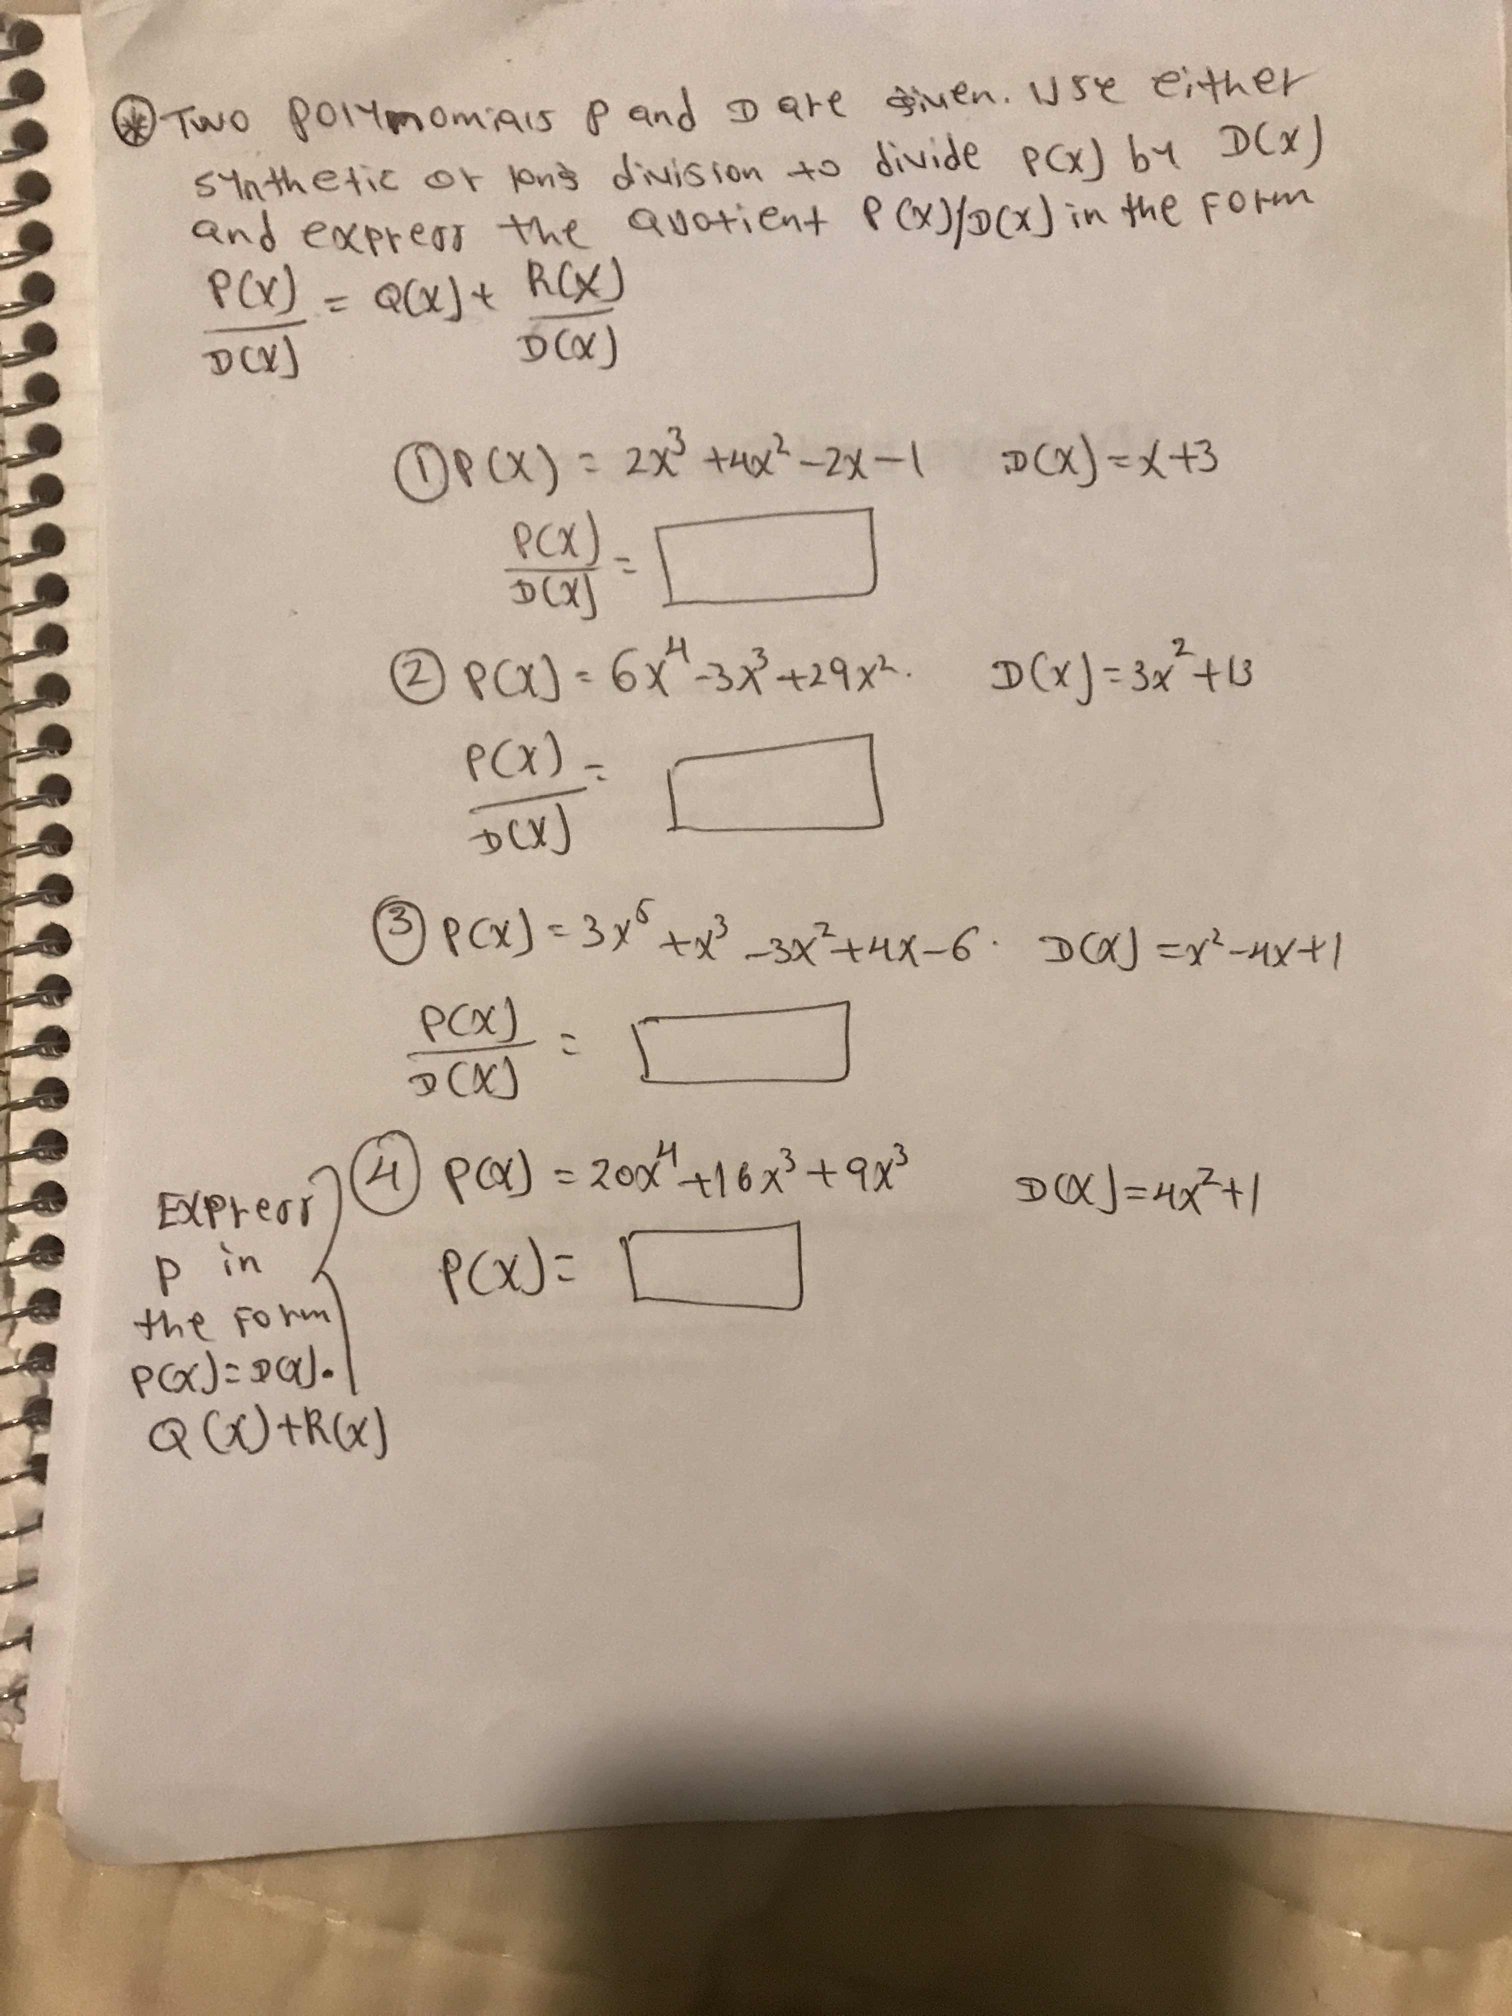 ⊛ Two Polynomials P and D are given. Use either
synthetic or long division to divide P(x) by D(x)
and express the Quotient P(x)/D(x) in the Form
P(x)/D(x) = Q(x) + R(x)/D(x)
① P(x) = 2x³ + 4x² - 2x - 1 D(x) = x + 3
P(x)/D(x) =
② P(x) = 6x⁴ - 3x³ + 29x². D(x) = 3x² + 13
P(x)/D(x) =
③ P(x) = 3x⁵ + x³ - 3x² + 4x - 6. D(x) = x² - 4x + 1
P(x)/D(x) =
④ P(x) = 20x⁴ + 16x³ + 9x³ D(x) = 4x² + 1
P(x) =
Express
P in
the Form
P(x) = D(x).
Q(x) + R(x)